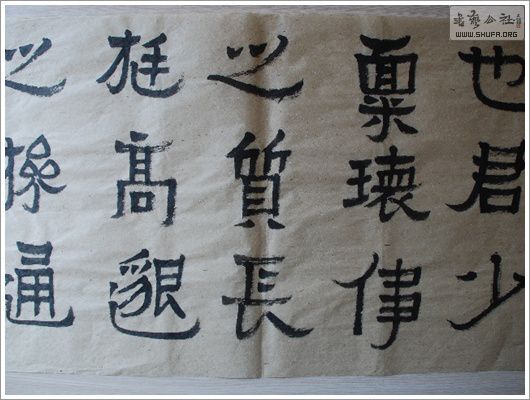 也君少
稟瓌偉
之質長
挺高邈
之操通
書藝公社
WWW.SHUFA.ORG